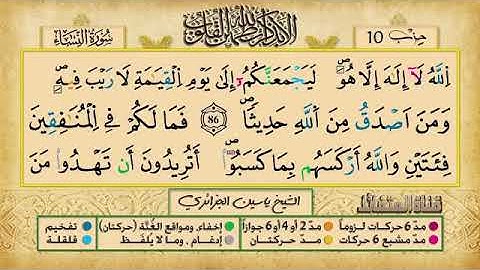 سُورَةُ النِّسَاءِ
أَلَا بِذِكْرِ اللَّهِ تَطْمَئِنُّ الْقُلُوبُ
حزب 10
اللَّهُ لَآ إِلَٰهَ إِلَّا هُوَ ۖ لَيَجْمَعَنَّكُمُۥٓ إِلَىٰ يَوْمِ الْقِيَٰمَةِ لَا رَيْبَ فِيهِ ۖ
وَمَنَ اَصْدَقُ مِنَ اللَّهِ حَدِيثاً ۖ 86 فَمَا لَكُمْ فِے الْمُنَٰفِقِينَ
فِئَتَيْنِ وَاللَّهُ أَرْكَسَهُم بِمَا كَسَبُوٓاْ ۖ أَتُرِيدُونَ أَن تَهْدُواْ مَنَ
الشيخ ياسين الجزائري
مدّ 6 حركات لزوماً
مدّ 2 أو 4 أو 6 جوازاً
إخفاء، ومواقع الغُنَّة (حركتان)
تفخيم
مدّ مشبع 6 حركات
مدّ حركتان
إدغام ، وما لا يُلفَظ
قلقلة